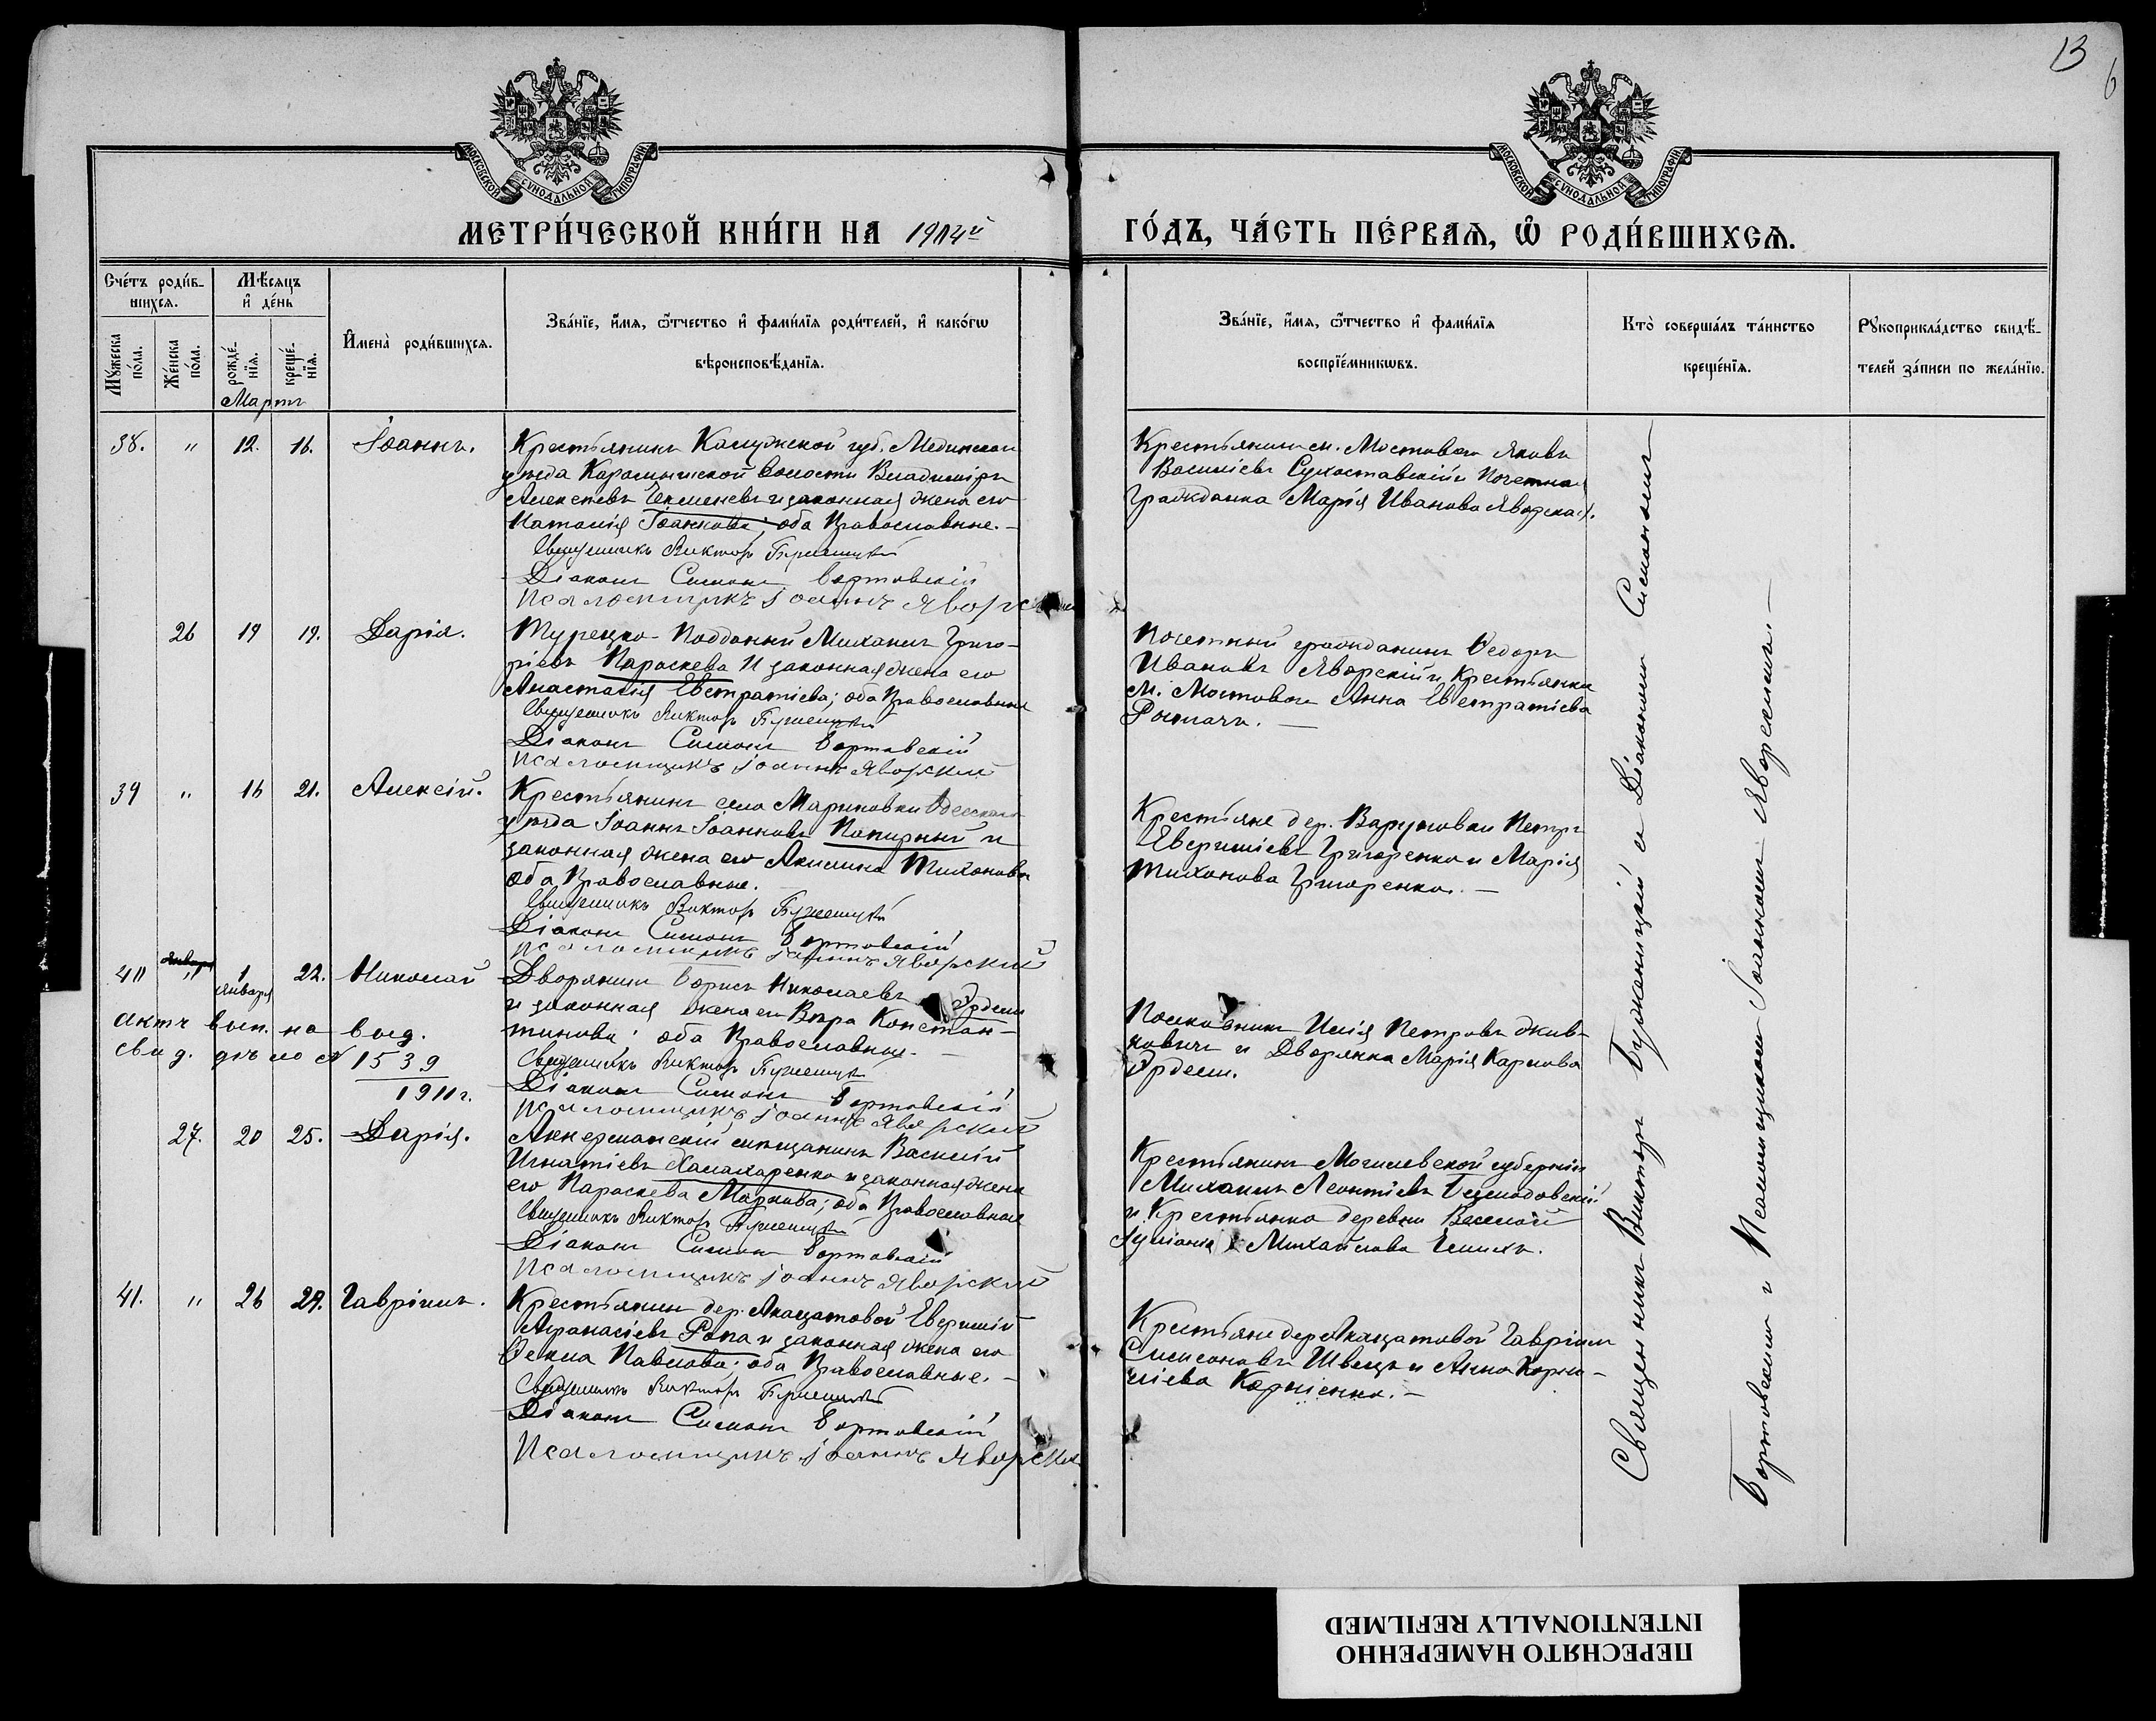 13
6
МОСКОВСКОЙ СѴНОДАЛЬНОЙ ТИПОГРАФІИ
МОСКОВСКОЙ СѴНОДАЛЬНОЙ ТИПОГРАФІИ
МЕТРИ́ЧЕСКОЙ КНИ́ГИ НА 1904й
ГО́ДЪ, ЧА́СТЬ ПЕ́РВАѦ, Ѡ҆ РОДИ́ВШИХСѦ.
Сче́тъ роди́в-
шихсѧ.
Мѣ́сѧцъ
и҆ де́нь
Мꙋ́жеска
по́ла.
Же́нска
по́ла.
рожде́-
нїѧ.
креще́-
нїѧ.
И҆мена̀ роди́вшихсѧ.
Зва́нїе, и҆́мѧ, ѻ҆́тчество и҆ фами́лїѧ роди́телей, и҆ како́гѡ
вѣроисповѣ́данїѧ.
Зва́нїе, и҆́мѧ, ѻ҆́тчество и҆ фами́лїѧ
воспрїе́мникѡвъ.
Кто̀ соверша́лъ та́инство
креще́нїѧ.
Рꙋкоприкла́дство свидѣ́-
телей за́писи по жела́нїю.
Мартъ
38. " 12. 16. Іоаннъ.
Крестьянинъ Калужской губ. Медынскаго
уѣзда Карамышской волости Владиміръ
Алексѣевъ и законная жена его
Наталія Іоаннова; оба Православные.-
Священникъ Викторъ Бужаницкій
Діаконъ Симонъ Бортовскій
Псаломщикъ Іоаннъ Яворскій
Крестьянинъ м. Мостоваго Яковъ
Василіевъ Сухоставскій и Почетная
Гражданка Марія Иванова Яворская.
26 19 19. Дарія.
Турецко-Подданный Михаилъ Григо-
ріевъ Параскева и законная жена его
Анастасія Евстратіева; оба Православные
Священникъ Викторъ Бужаницкій
Діаконъ Симонъ Бортовскій
Псаломщикъ Іоаннъ Яворскій
Почетный гражданинъ Ѳедоръ
Ивановъ Яворскій и Крестьянка
м. Мостоваго Анна Евстратіева
39 " 16 21. Алексій.
Крестьянинъ села Мариновки Одесскаго
уѣзда Іоаннъ Іоанновъ Попирный и
законная жена его Акилина Тихонова
оба Православные.
Священникъ Викторъ Бужаницкій
Діаконъ Симонъ Бортовскій
Псаломщикъ Іоаннъ Яворскій
Крестьяне дер. Петръ
Тихонова Григоренко.-
Григоренко и Марія
40 " 1 22. Николай
января
актъ вып. на выд.
свид. дѣло № 1539
1911 г.
Дворянинъ Борисъ Николаевъ Эрдели
и законная жена его Вѣра Констан-
тинова; оба Православные.-
Священникъ Викторъ Бужаницкій
Діаконъ Симонъ Бортовскій
Псаломщикъ Іоаннъ Яворскій
Полковникъ Илія Петровъ Жив-
ковичъ и Дворянка Марія Карлова
Эрдели.
27. 20 25. Дарія.
Аккерманскій мѣщанинъ Василій
Игнатіевъ и законная жена
его Параскева Маркова; оба Православные
Священникъ Викторъ Бужаницкій
Діаконъ Симонъ Бортовскій
Псаломщикъ Іоаннъ Яворскій
Крестьянинъ Могилевской губерніи
Михаилъ Леонтіевъ
и Крестьянка деревни Веселой
Іуліанія Михайлова
41. " 26 29. Гавріилъ.
Крестьянинъ дер. Акацатовой
Аѳанасіевъ Ропа и законная жена его
Ѳекла Павлова; оба Православные.-
Священникъ Викторъ Бужаницкій
Діаконъ Симонъ Бортовскій
Псаломщикъ Іоаннъ Яворскій
Крестьяне дер. Акацатовой Гавріилъ
Симеоновъ Швецъ и Анна Корни-
ліева Корніенко.-
Священникъ Викторъ Бужаницкій съ Діакономъ Симономъ
Бортовскимъ и Псаломщикомъ Іоанномъ Яворскимъ.-
ПЕРЕСНЯТО НАМЕРЕННО
INTENTIONALLY REFILMED